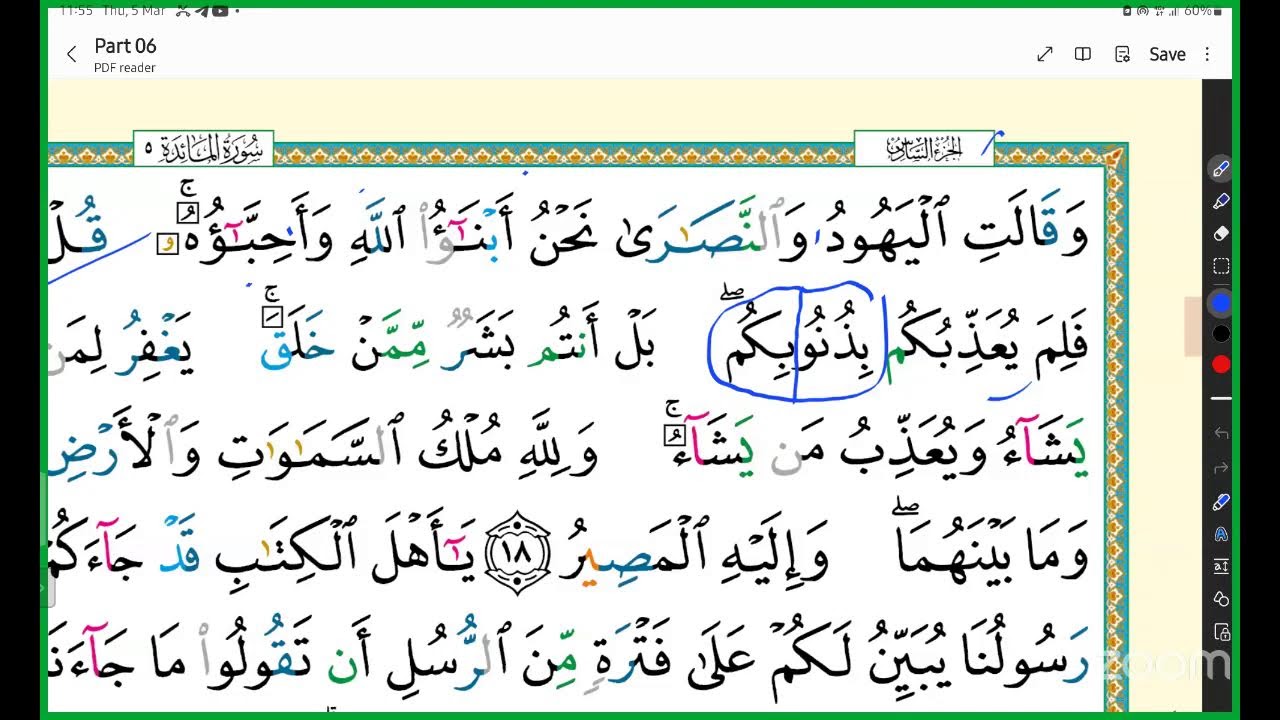 11:55 Thu, 5 Mar
60%
Part 06
PDF reader
Save
الجزء السادس
سورة المائدة ٥
وَقَالَتِ ٱلْيَهُودُ وَٱلنَّصَـٰرَىٰ نَحْنُ أَبْنَـٰٓؤُا۟ ٱللَّهِ وَأَحِبَّـٰٓؤُهُۥ ۚ قُلْ
فَلِمَ يُعَذِّبُكُم بِذُنُوبِكُم ۖ بَلْ أَنتُم بَشَرٌ مِّمَّنْ خَلَقَ ۚ يَغْفِرُ لِمَن
يَشَآءُ وَيُعَذِّبُ مَن يَشَآءُ ۚ وَلِلَّهِ مُلْكُ ٱلسَّمَـٰوَٰتِ وَٱلْأَرْضِ
وَمَا بَيْنَهُمَا ۖ وَإِلَيْهِ ٱلْمَصِيرُ ١٨ يَـٰٓأَهْلَ ٱلْكِتَـٰبِ قَدْ جَآءَكُمْ
رَسُولُنَا يُبَيِّنُ لَكُمْ عَلَىٰ فَتْرَةٍ مِّنَ ٱلرُّسُلِ أَن تَقُولُوا۟ مَا جَآءَنَا
zoom